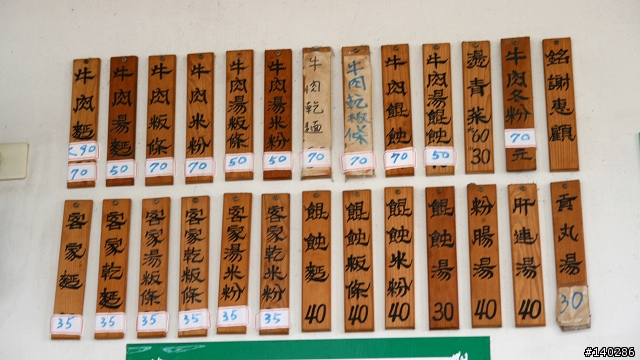 牛肉麵 大90 70
牛肉湯麵 50
牛肉粄條 70
牛肉米粉 70
牛肉湯粄條 50
牛肉湯米粉 50
牛肉乾麵 70
牛肉乾粄條 70
牛肉餛蝕 70
牛肉湯餛蝕 50
燙青菜 60 30
牛肉冬粉 70 元
銘謝惠顧
客家麵 35
客家乾麵 35
客家湯粄條 35
客家乾粄條 35
客家湯米粉 35
客家乾米粉 35
餛蝕麵 40
餛蝕粄條 40
餛蝕米粉 40
餛蝕湯 30
粉腸湯 40
肝連湯 40
貢丸湯 30
#140286